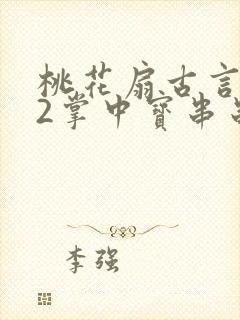 桃花扇古言
2掌中寳串
李强